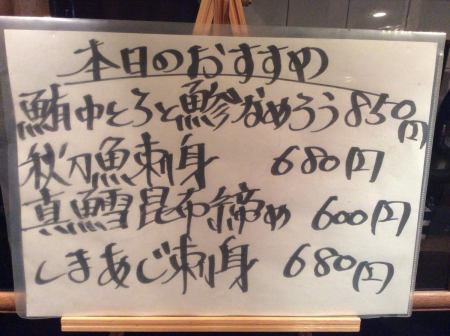 本日のおすすめ
鮪中とろと鯵なめろう 850円
秋刀魚刺身 680円
真鱈昆布締め 600円
しまあじ刺身 680円